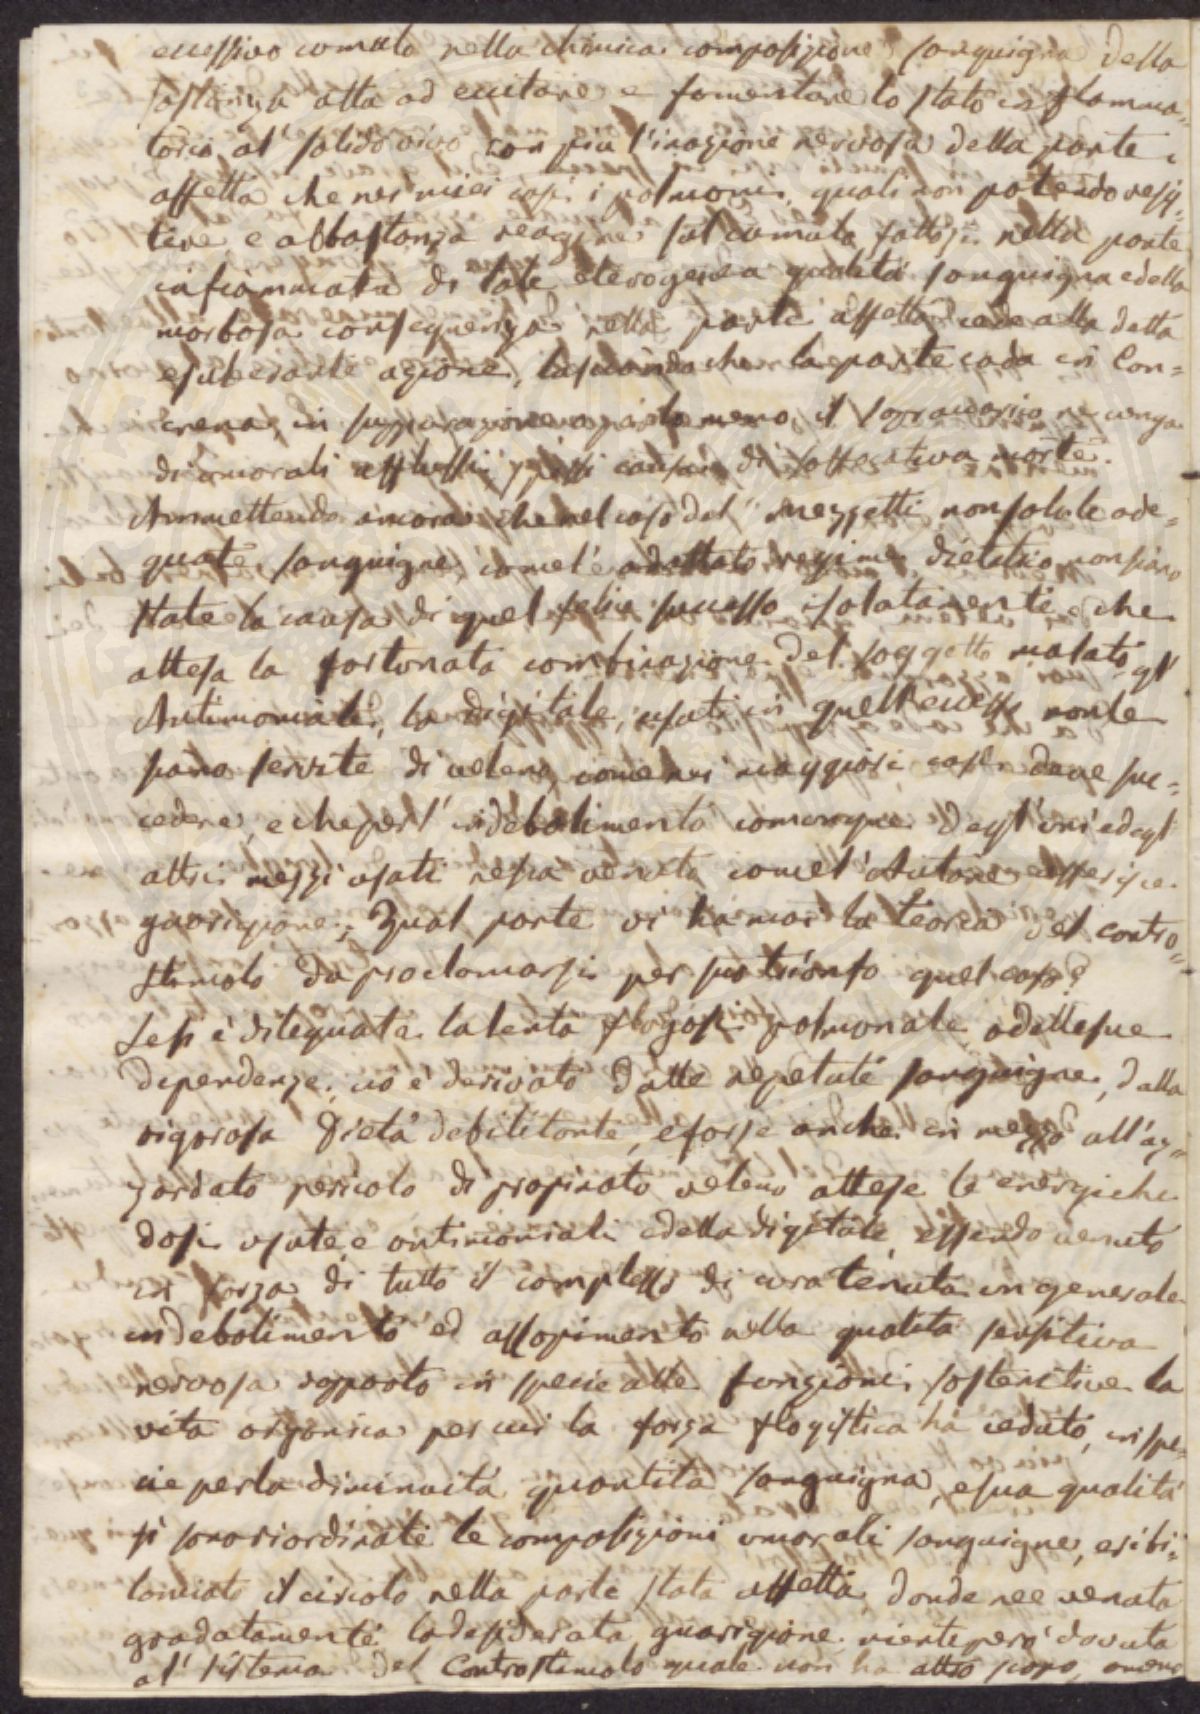 eccessivo cumulo nella chimica composizione sanguigna della
sostanza atta ad eccitare e fomentare lo stato infiamma=
torio al solido vivo con più l'irazione nervosa della parte
affetta che nei miei casi i polmoni, quali non potendo resis=
tere e abbastanza reagire sul cumulo fattosi nella parte
infiammata di tale eterogenea qualità sanguigna e della
morbosa conseguenza nella parte affetta cede alla detta
esuberante azione, lasciando che la parte cada in Can=
crena, in suppurazione o per lo meno, il sopraccarico ne venga
di umorali afflussi, spessi causa di soffocativa morte.
Ammettendo ancora che nel caso del Mezzetti non solo le ade=
quate sanguigne, come l'adattato regime dietetico non siano
state la causa di quel felice successo isolatamente, e che
attesa la fortunata combinazione del soggetto malato gl'
Antimoniali, la digitale, usati in quell'eccesso non le
siano servite di veleno, come nei maggiori casi deve suc=
cedere, e che per l'indebolimento comunque degl'uni ed egl'
altri mezzi usati nesia venuta come l'Autore asserisce
guarigione; Qual parte vi ha mai la teoria del contro=
stimolo da proclamarsi per suo trionfo quel caso?
Se si è dileguata la lenta flogosi polmonale, o di lle sue
dipendenze, ciò è derivato dalle repetute sanguigne, dalla
rigorosa Dieta debilitante, e forse anche in mezzo all'az=
zardato pericolo di propinato veleno attese le energiche
dosi usate, e antimoniali e della digitale, essendo venuto
in forza di tutto il complesso di cura tenuta un generale
indebolimento ed assopimento nella qualità sensitiva
nervosa rapporto in specie alle funzioni sostenitive la
vita organica per cui la forza flogistica ha ceduto, in spe=
cie per la diminuita quantità sanguigna, e sua qualità
si sono riordinate le composizioni umorali sanguigne, e ribi=
lanciato il circolo nella parte stata affetta, donde ne è venuta
gradatamente la desiderata guarigione, niente però dovuta
al sistema del Controstimolo quale non ha altro scopo,